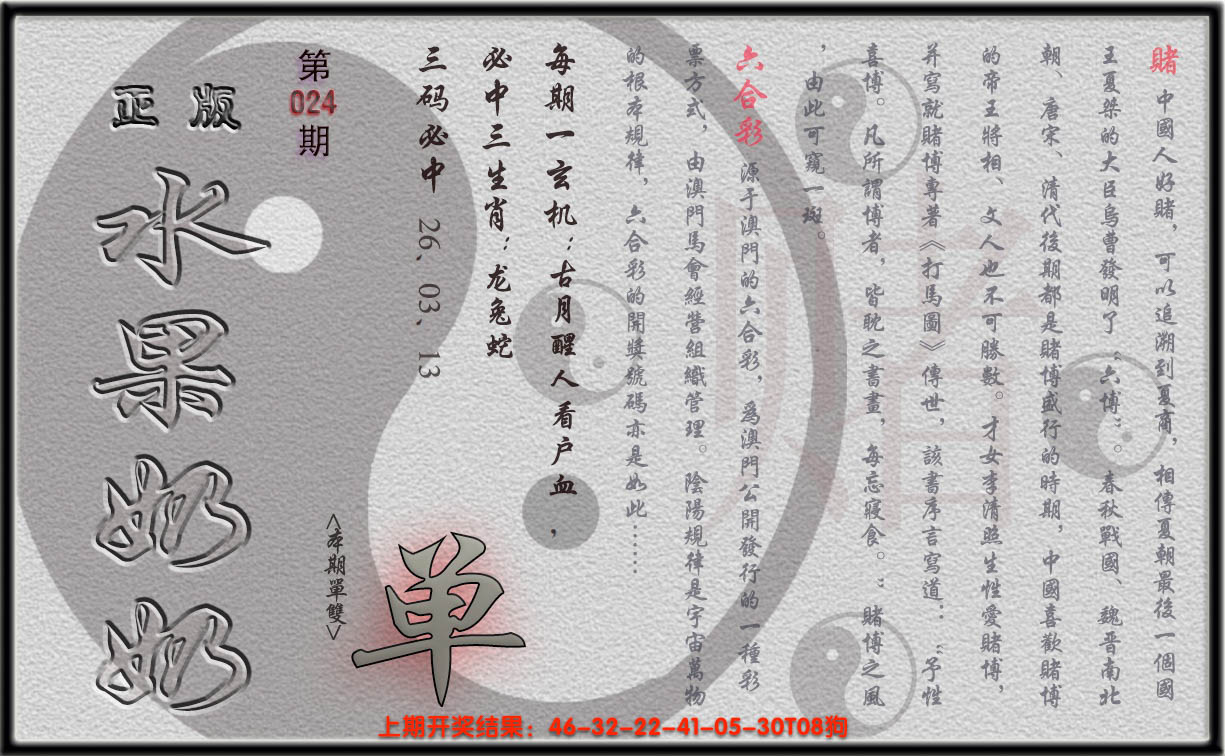 賭 中國人好賭，可以追溯到夏商，相傳夏朝最後一個國
王夏桀的大臣烏曹發明了“六博”。春秋戰國、魏晋南北
朝、唐宋、清代後期都是賭博盛行的時期，中國喜歡賭博
的帝王將相、文人也不可勝數。才女李清照生性愛賭博，
并寫就賭博專著《打馬圖》傳世，該書序言寫道：“予性
喜博。凡所謂博者，皆耽之書畫，每忘寢食。”賭博之風
，由此可窺一斑。
六合彩 源于澳門的六合彩，爲澳門公開發行的一種彩
票方式，由澳門馬會經營組織管理。陰陽規律是宇宙萬物
的根本規律，六合彩的開獎號碼亦是如此……
每期一玄机：古月醒人看户血，
必中三生肖：龙兔蛇
三码必中 26、03、13
第024期
正版
水果奶奶
<本期單雙>
单
上期开奖结果：46-32-22-41-05-30T08狗